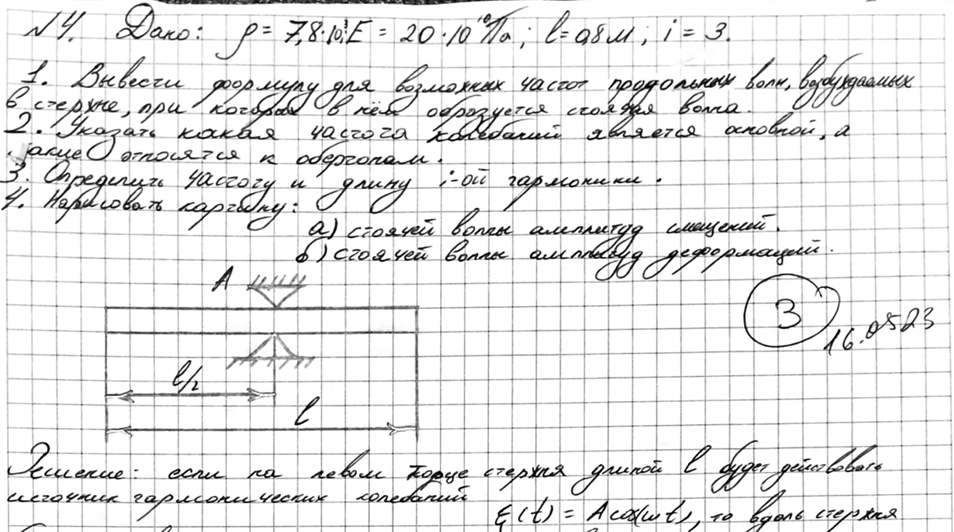 №4. Дано: ρ = 7,8·10³; E = 20·10¹⁰ Па; l = 0,8 м; i = 3.
1. Вывести формулу для возможных частот продольных волн, возбуждаемых
в стержне, при которых в нём образуется стоячая волна.
2. Указать какая частота колебаний является основной, а
какие относятся к обертонам.
3. Определить частоту и длину i-ой гармоники.
4. Нарисовать картину:
а) стоячей волны амплитуд смещений.
б) стоячей волны амплитуд деформаций.
A
3
16.0523
l/2
l
Решение: если на левом торце стержня длиной l будет действовать
источник гармонических колебаний
ξ(t) = A cos(ωt), то вдоль стержня